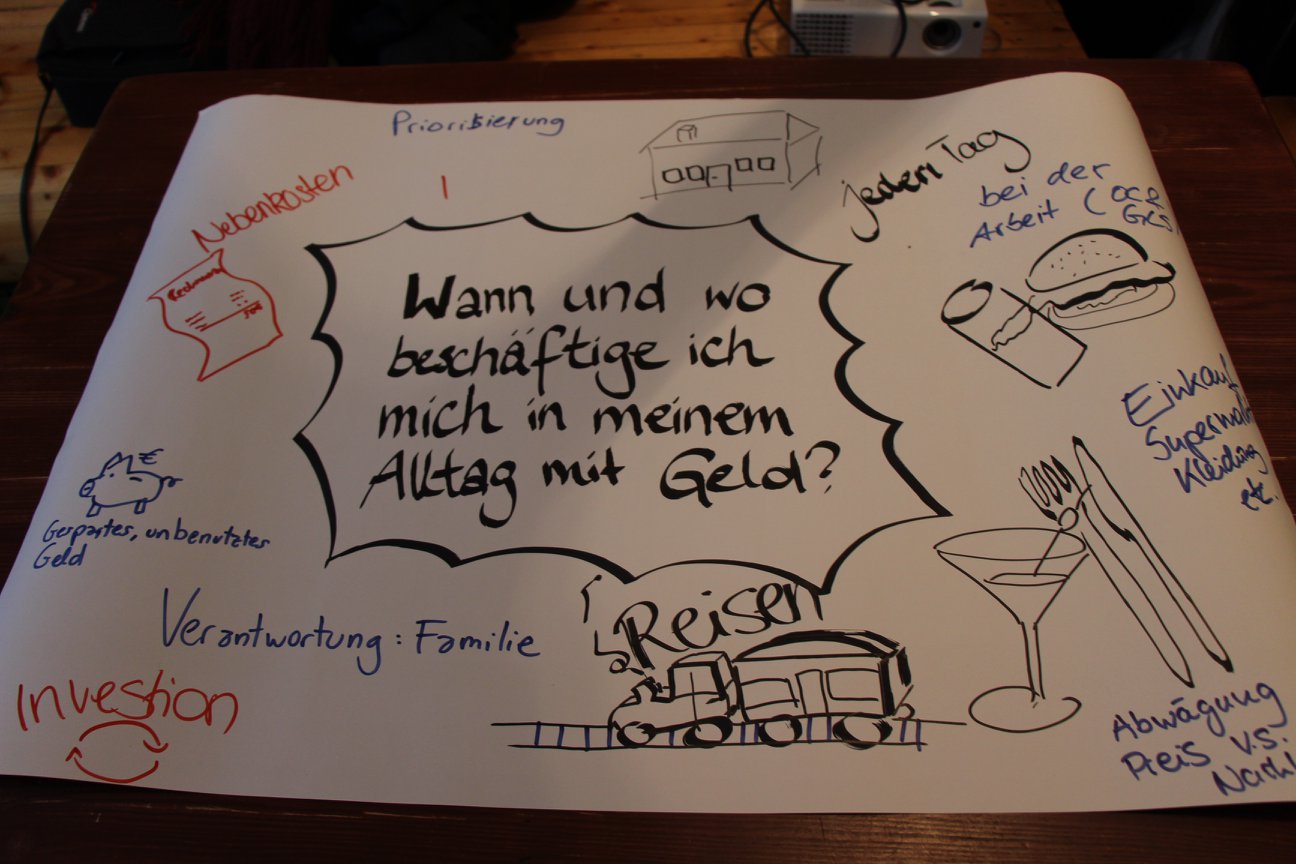 Priorisierung
Nebenkosten
Rechnung
jeden Tag
bei der
Arbeit (
Wann und wo
beschäftige ich
mich in meinem
Alltag mit Geld?
Einkauf
Supermarkt
Kleidung
etc.
€
Gespartes, unbenutztes
Geld
Verantwortung: Familie
Reisen
Investion
Abwägung
Preis v.s.